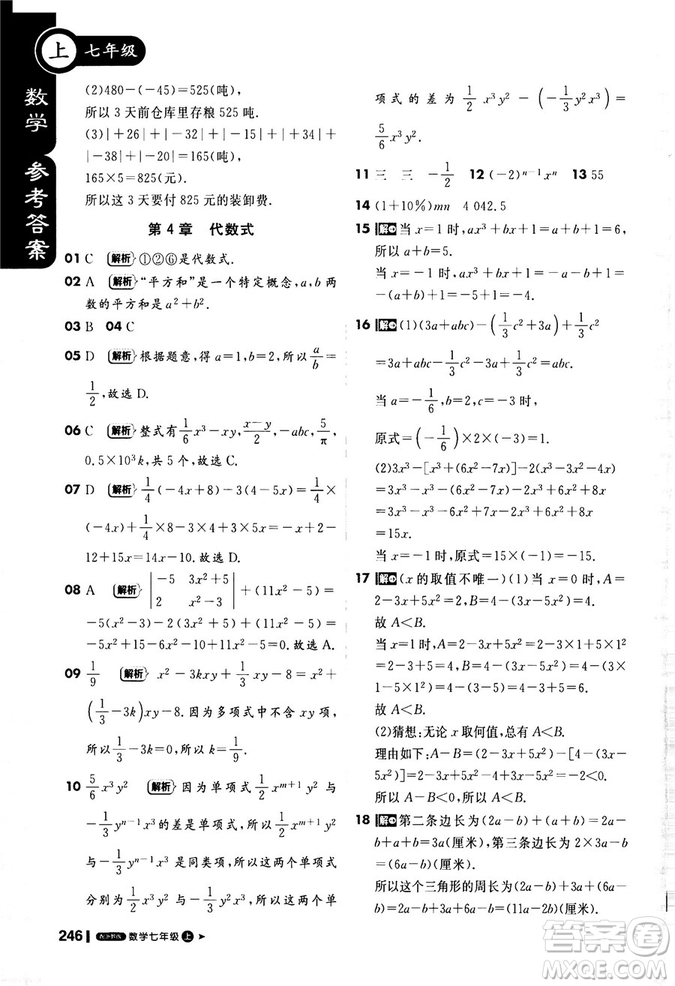 上 七年级
数学 参考答案
(2)480-(-45)=525(吨),
所以 3 天前仓库里存粮 525 吨.
(3)|+26|+|-32|+|-15|+|+34|+
|-38|+|-20|=165(吨),
165×5=825(元),
所以这 3 天要付 825 元的装卸费.
第 4 章 代数式
01 C 解析 ①②⑥是代数式.
02 A 解析 “平方和”是一个特定概念,a,b 两
数的平方和是 a²+b².
03 B 04 C
05 D 解析 根据题意,得 a=1,b=2,所以 a/b=
1/2,故选 D.
06 C 解析 整式有 1/6 x³-xy, (x-y)/2, -abc, 5/π,
0.5×10³k,共 5 个,故选 C.
07 D 解析 1/4(-4x+8)-3(4-5x)=1/4×
(-4x)+1/4×8-3×4+3×5x=-x+2-
12+15x=14x-10,故选 D.
08 A 解析 |-5 3x²+5; 2 x²-3|+(11x²-5)=
-5(x²-3)-2(3x²+5)+(11x²-5)=
-5x²+15-6x²-10+11x²-5=0.故选 A.
09 1/9 解析 x²-3kxy-3y²+1/3xy-8=x²+
(1/3-3k)xy-3y²-8.因为多项式中不含 xy
项,所以 1/3-3k=0,所以 k=1/9.
10 5/6x³y² 解析 因为单项式 1/2x^(m+1)y² 与
-1/3y^(n-1)x³ 的差是单项式,所以 1/2x^(m+1)y² 与
-1/3y^(n-1)x³ 是同类项,所以这两个单项式
分别为 1/2x³y² 与 -1/3y²x³,所以这两个单
项式的差为 1/2x³y²-(-1/3y²x³)=
5/6x³y².
11 三 三 -1/2 12 (-2)^(n-1)x^n 13 55
14 (1+10%)mn 4 042.5
15 解 当 x=1 时,ax³+bx+1=a+b+1=6,
所以 a+b=5.
当 x=-1 时,ax³+bx+1=-a-b+1=
-(a+b)+1=-5+1=-4.
16 解 (1)(3a+abc)-(1/3c²+3a)+1/3c²
=3a+abc-1/3c²-3a+1/3c²=abc.
当 a=-1/6,b=2,c=-3 时,
原式=(-1/6)×2×(-3)=1.
(2)3x³-[x³+(6x²-7x)]-2(x³-3x²-4x)
=3x³-x³-(6x²-7x)-2x³+6x²+8x
=3x³-x³-6x²+7x-2x³+6x²+8x
=15x.
当 x=-1 时,原式=15×(-1)=-15.
17 解 (x 的取值不唯一)(1)当 x=0 时,A=
2-3x+5x²=2,B=5x²-3x+6=6,
故 A<B.
当 x=1 时,A=2-3x+5x²=2-3+5=
4,B=5x²-3x+6=5-3+6=8,
故 A<B.
(2)猜想:无论 x 取何值,总有 A<B.
理由如下:A-B=(2-3x+5x²)-(5x²-
3x+6)=2-3x+5x²-5x²+3x-6=-4<0.
所以 A-B<0,所以 A<B.
18 解 第二条边长为(2a-b)+(a+b)=2a-
b+a+b=3a(厘米),第三条边长为 2×3a-
b=(6a-b)(厘米).
所以这个三角形的周长为(2a-b)+3a+
(6a-b)=(11a-2b)(厘米).
246 数学七年级 上
答案圈
MXQE.COM